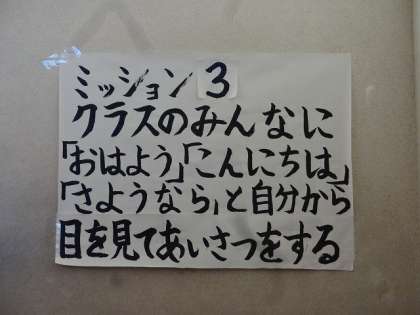 ミッション 3
クラスのみんなに
「おはよう」「こんにちは」
「さようなら」と自分から
目を見てあいさつをする